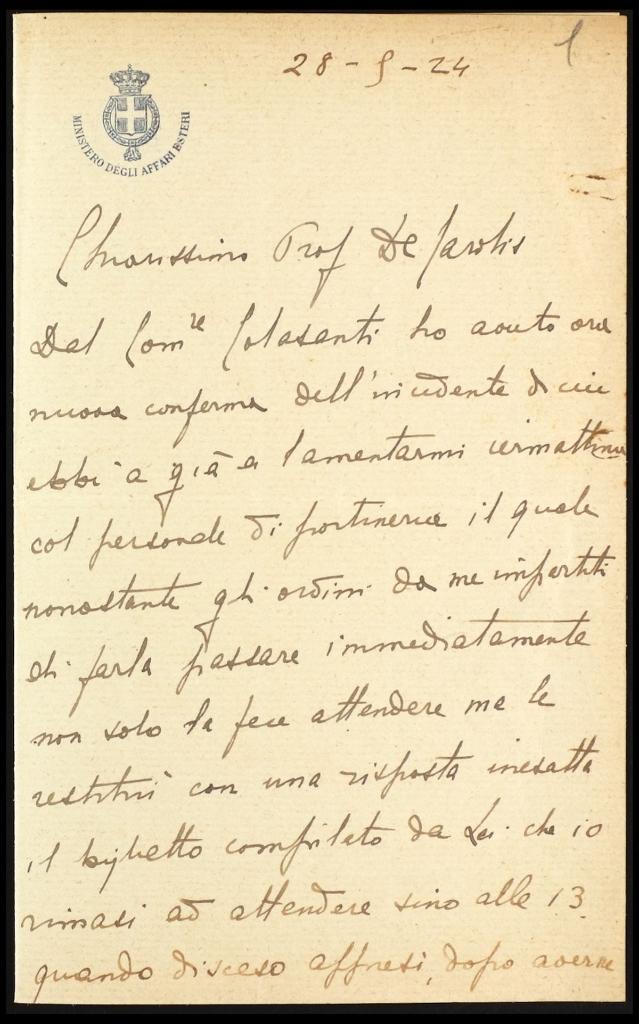 28-5-24
1
MINISTERO DEGLI AFFARI ESTERI
Chiarissimo Prof De Carolis
Dal Comre Colasanti ho avuto ora
nuova conferma dell'incidente di cui
ebbi a già a lamentarmi iermattina
col personale di portineria il quale
nonostante gli ordini da me impartiti
di farla passare immediatamente
non solo la fece attendere ma le
restituì con una risposta inesatta
il biglietto compilato da Lei che io
rimasi ad attendere sino alle 13
quando disceso appresi, dopo averne